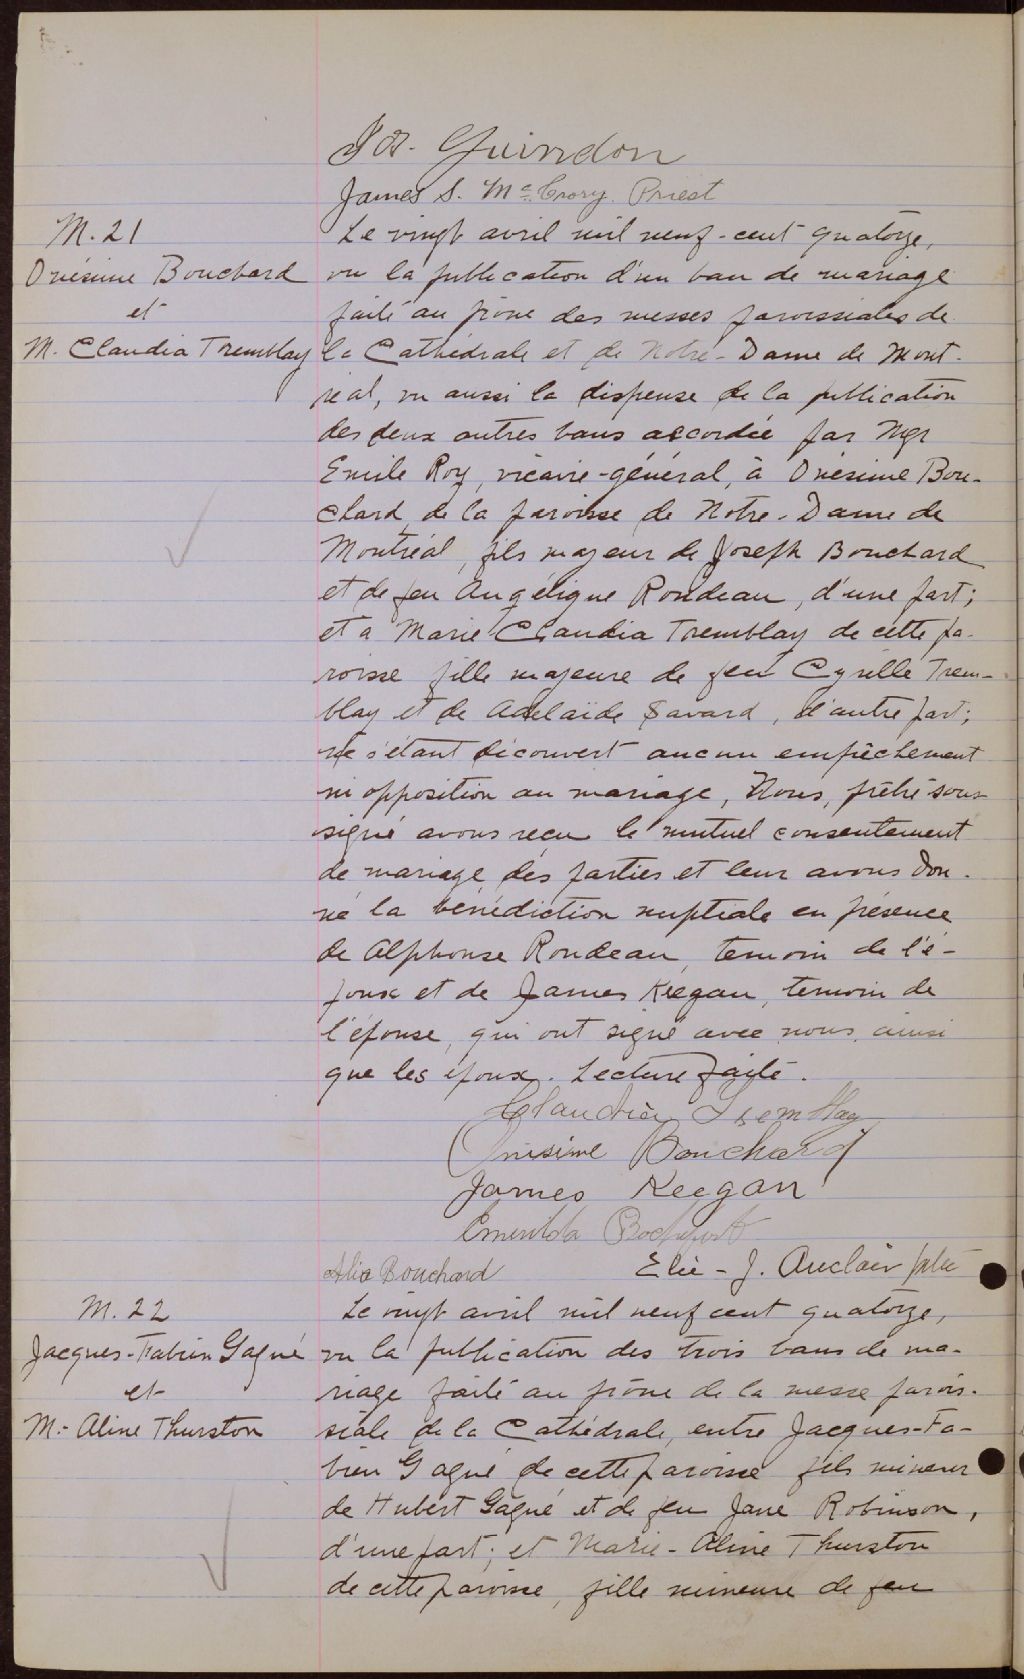 Guindon
James S. McCrory Priest
M. 21
Onésime Bouchard
et
M. Claudia Tremblay
Le vingt avril mil neuf-cent quatorze,
vu la publication d'un ban de mariage
faite au prône des messes paroissiales de
la Cathédrale et de Notre-Dame de Mont-
réal, vu aussi la dispense de la publication
des deux autres bans accordée par Mgr
Emile Roy, vicaire-général, à Onésime Bou-
chard, de la paroisse de Notre-Dame de
Montréal, fils majeur de Joseph Bouchard
et de feu Angélique Rondeau, d'une part;
et a Marie Claudia Tremblay de cette pa-
roisse fille majeure de feu Cyrille Trem-
blay et de Adelaïde Savard, d'autre part;
ne s'étant découvert aucun empêchement
ni opposition au mariage, Nous, prêtre sous-
signé avons recu le mutuel consentement
de mariage des parties et leur avons don-
né la bénédiction nuptiale en présence
de Alphonse Rondeau, temoin de l'é-
poux et de James Keegan, temoin de
l'épouse, qui ont signé avec nous, ainsi
que les époux. Lecture faite.
Claudia Tremblay
Onisime Bouchard
James Keegan
Alia Bouchard
Elie-J. Auclair ptre
M. 22
Jacques-Fabien Gagné
et
M.-Aline Thurston
Le vingt avril mil neuf cent quatorze,
vu la publication des trois bans de ma-
riage faite au prône de la messe parois-
siale de la Cathédrale, entre Jacques-Fa-
bien Gagné de cette paroisse fils mineur
de Hubert Gagné et de feu Jane Robinson,
d'une part; et Marie-Aline Thurston
de cette paroisse, fille mineure de feu